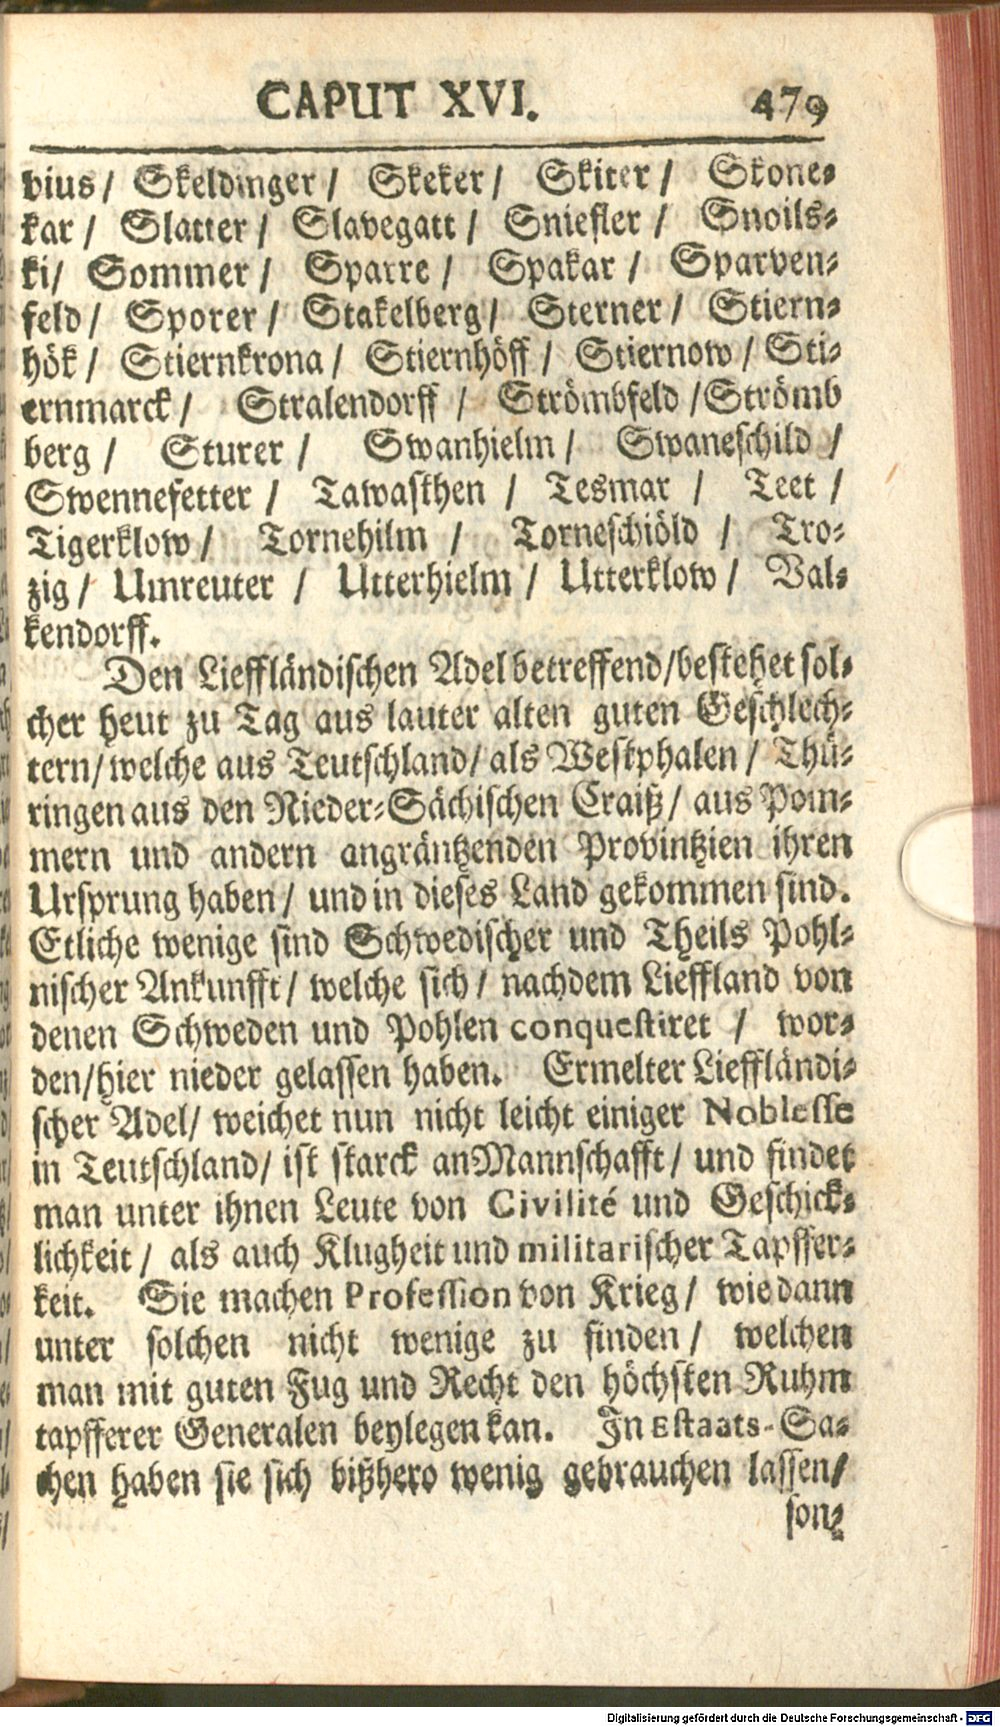 CAPUT XVI. 479
vius / Skeldinger / Skeker / Skiter / Skone-
kar / Slatter / Slavegatt / Sniefler / Snoils-
ki / Sommer / Sparre / Spakar / Sparven-
feld / Sporer / Stakelberg / Sterner / Stiern-
hök / Stiernkrona / Stiernhöff / Stiernow / Sti-
ernmarck / Stralendorff / Strömbfeld / Strömb
berg / Sturer / Swanhielm / Swaneschild /
Swennefetter / Tawasthen / Tesmar / Teet /
Tigerklow / Tornehilm / Torneschiöld / Tro-
zig / Umreuter / Utterhielm / Utterklow / Val-
kendorff.
Den Lieffländischen Adel betreffend / bestehet sol-
cher heut zu Tag aus lauter alten guten Geschlech-
tern / welche aus Teutschland / als Westphalen / Thü-
ringen aus den Nieder-Sächischen Craiß / aus Pom-
mern und andern angräntzenden Provintzien ihren
Ursprung haben / und in dieses Land gekommen sind.
Etliche wenige sind Schwedischer und Theils Pohl-
nischer Ankunfft / welche sich / nachdem Lieffland von
denen Schweden und Pohlen conquestiret / wor-
den / hier nieder gelassen haben. Ermelter Lieffländi-
scher Adel / weichet nun nicht leicht einiger Noblesse
in Teutschland / ist starck an Mannschafft / und findet
man unter ihnen Leute von Civilité und Geschick-
lichkeit / als auch Klugheit und militarischer Tapffer-
keit. Sie machen Profession von Krieg / wie dann
unter solchen nicht wenige zu finden / welchen
man mit guten Fug und Recht den höchsten Ruhm
tapfferer Generalen beylegen kan. In Estaats-Sa-
chen haben sie sich bißhero wenig gebrauchen lassen /
son-
Digitalisierung gefördert durch die Deutsche Forschungsgemeinschaft - DFG